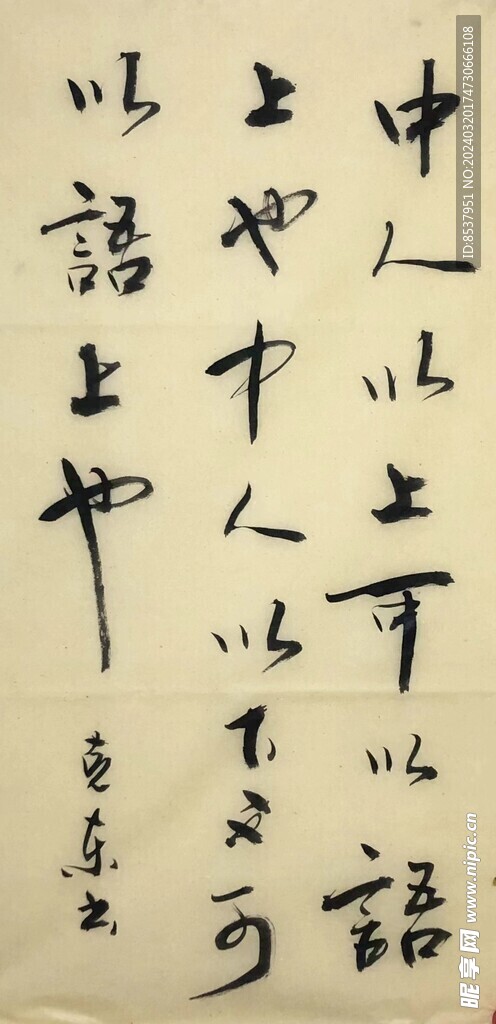 申人以上可以語
上也中人以下不可
以語上也
克东书
ID:8537951 NO:20240320174730666108
昵享网 www.nipic.cn